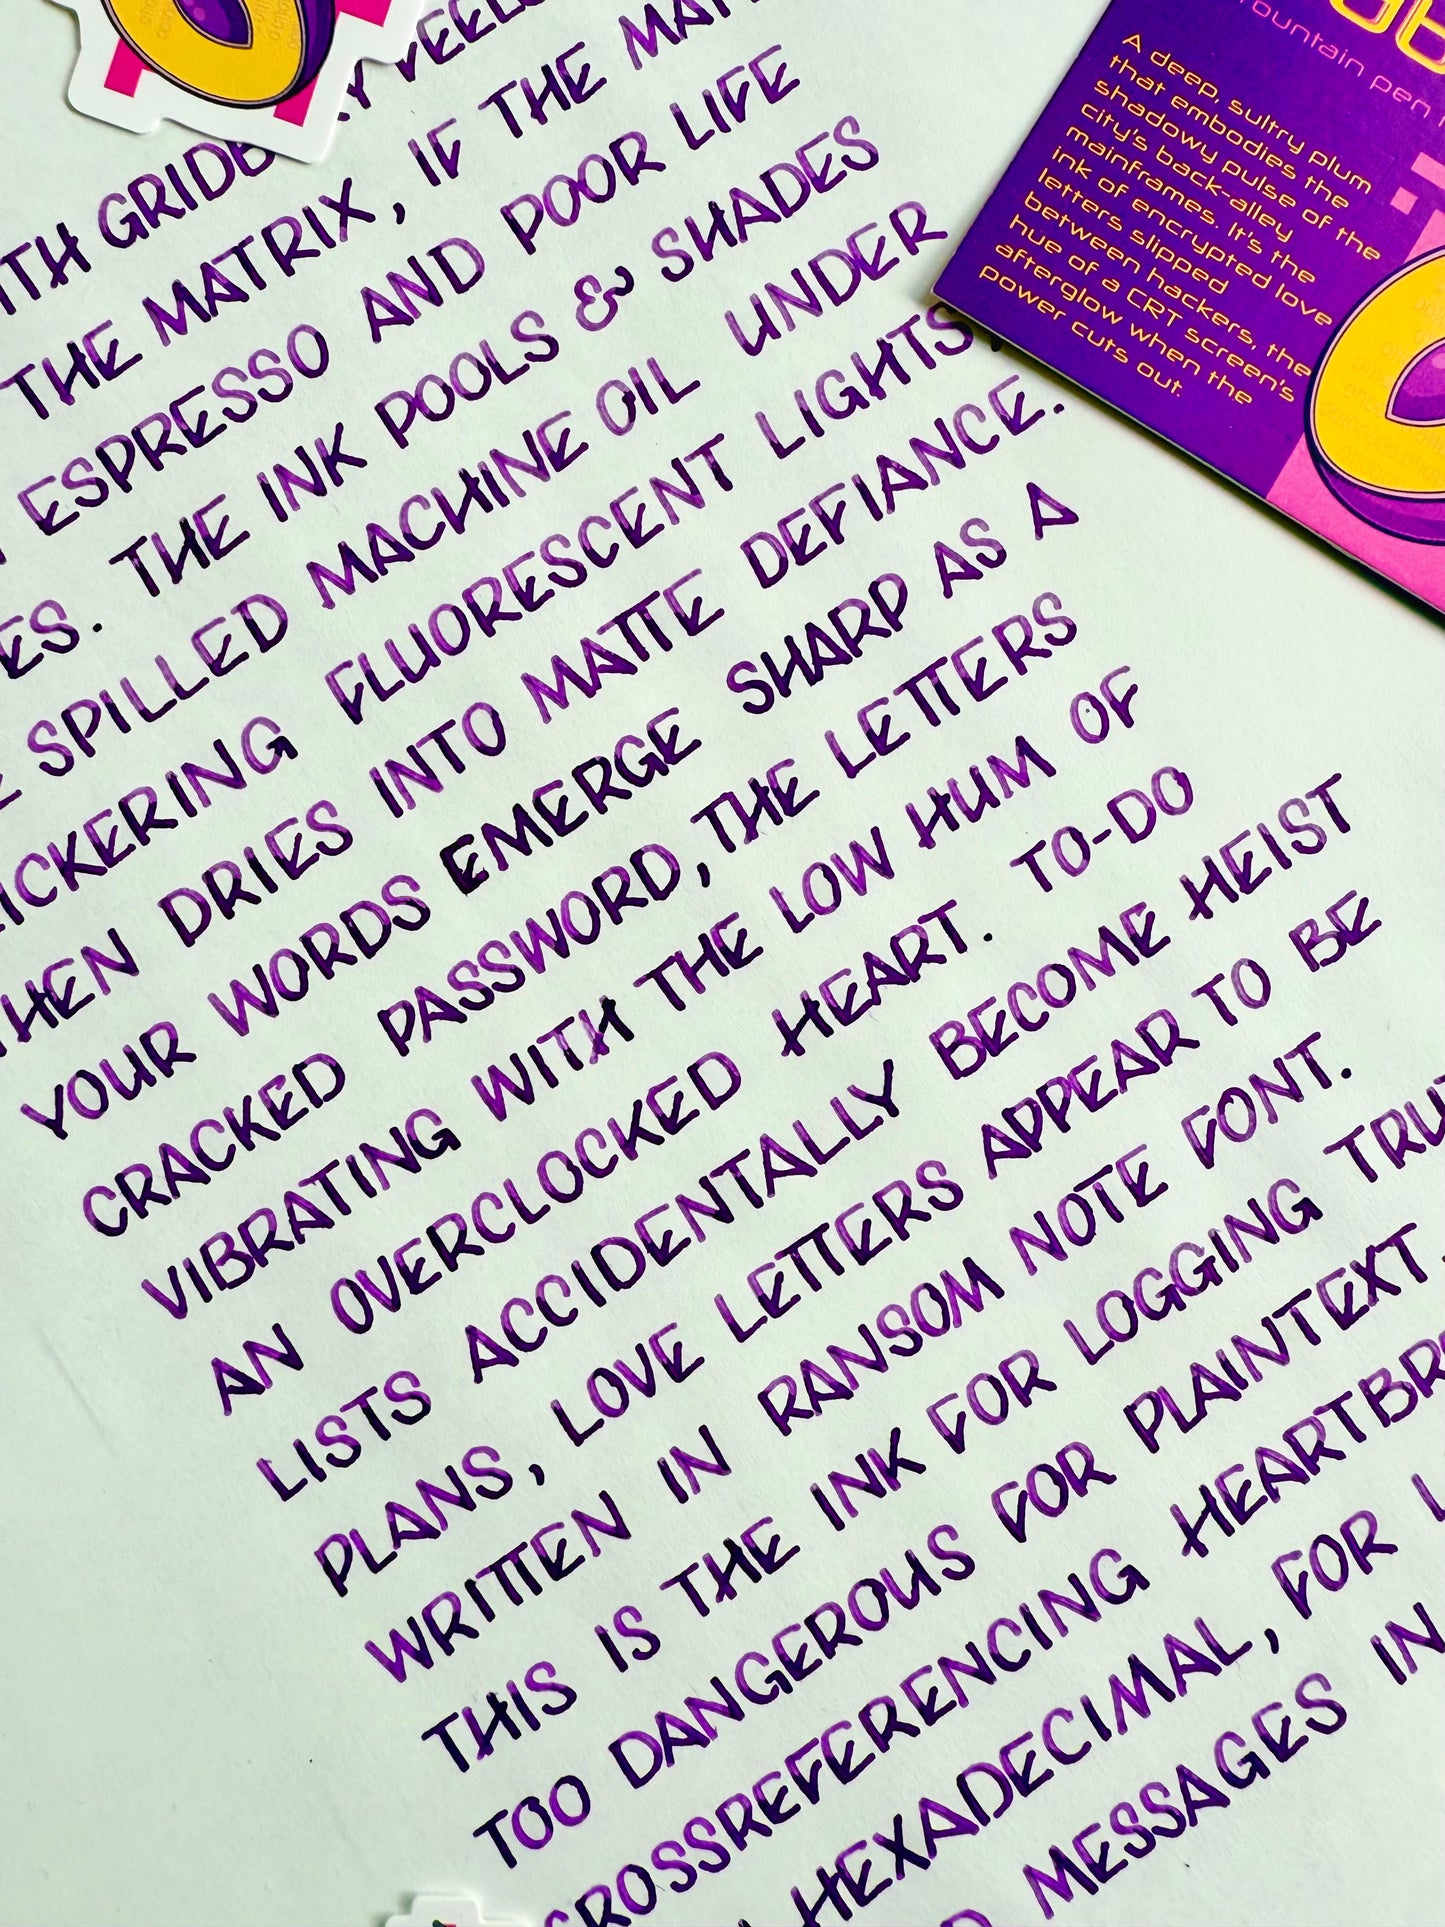 THE MATRIX, IF THE
ESPRESSO AND POOR LIFE
THE INK POOLS & SHADES
SPILLED MACHINE OIL UNDER
FLUORESCENT LIGHTS,
THEN DRIES INTO MATTE DEFIANCE.
YOUR WORDS EMERGE SHARP AS A
CRACKED PASSWORD, THE LETTERS
VIBRATING WITH THE LOW HUM OF
AN OVERCLOCKED HEART. TO-DO
LISTS ACCIDENTALLY BECOME HEIST
PLANS, LOVE LETTERS APPEAR TO BE
WRITTEN IN RANSOM NOTE FONT.
THIS IS THE INK FOR LOGGING
TOO DANGEROUS FOR PLAINTEXT,
HEXADECIMAL, FOR
MESSAGES IN
fountain pen
A deep, sultry plum
that embodies the
shadowy pulse of the
City's back-alley
mainframes. It's the
ink of encrypted love
letters slipped
between hackers, the
hue of a CRT screen's
afterglow when the
power cuts out.